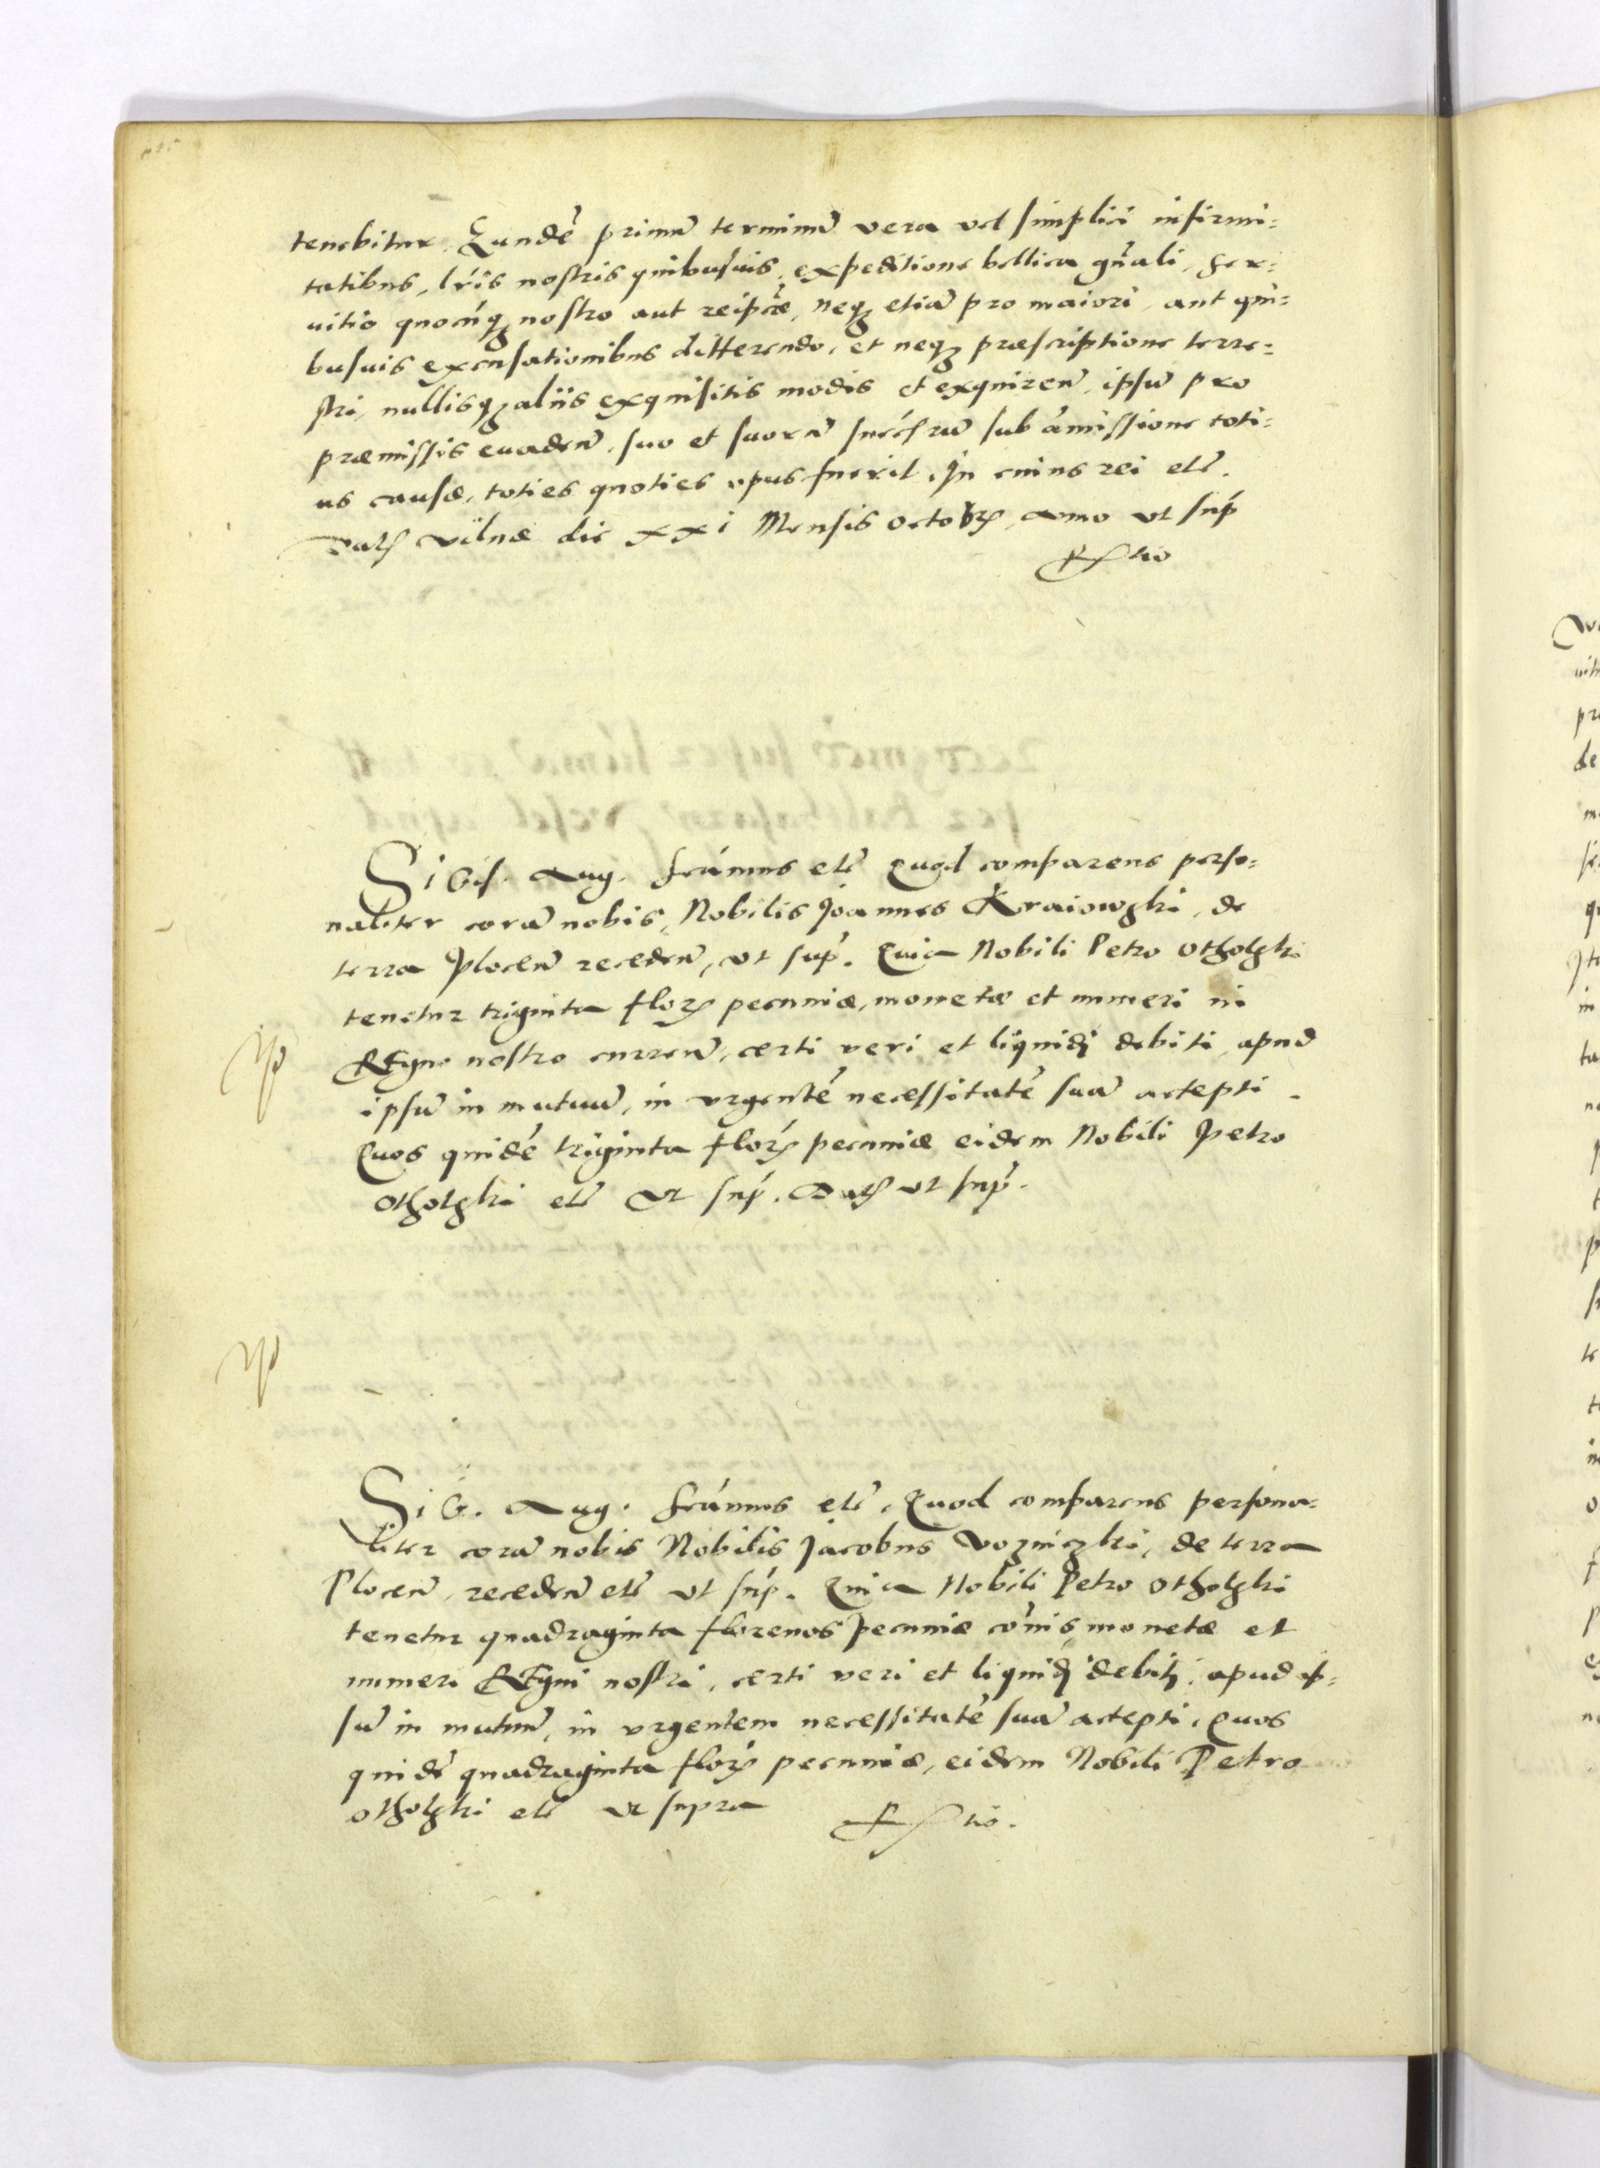 tenebitur. Eundē primū terminū vera vel simplici infirmi=
tatibus, lr̃is nostris quibusuis, expeditione bellica gñali, ser=
uitio quocūq; nostro aut reipcæ, neq; etiã pro maiori, aut qui=
busuis excusationibus differendo, et neq; præscriptione terre=
stri, nullisq; aliis exquisitis modis et exquireñ, ipsum pro
præmissis euadeñ, suo et suorū succrū sub amissione toti=
us causæ, toties quoties opus fuerit. In cuius rei etc̃.
Datū Vilnæ die xxi Mensis Octobrs, anno vt sup
R tio
Sigis. Aug. scāmus etc̃ Quod comparens perso=
naliter corã nobis, Nobilis Joannes Kraiowski, de
terra Ploceñ recedeñ, vt sup̄. Quia Nobili Petro Otholski
tenetur triginta flor pecuniæ, monetæ et numeri in
Regno nostro curreñ, certi veri et liquidj debiti, apud
ipsū in mutuū, in vrgentē necessitatē suã accepti.
Quos quidē triginta flor pecuniæ eidem Nobili Petro
Otholski etc̃ vt sup̄. Datū vt sup̄.
Sig. Aug. scāmus etc̃, Quod comparens persona=
liter corã nobis Nobilis Jacobus Vozniczki, de terra
Ploceñ, recedeñ etc̃ vt sup̄. Quia Nobili Petro Otholski
tenetur quadraginta florenos pecuniæ cōmis, monetæ et
numeri Regni nostri, certi veri et liquidj debitj, apud ip=
sū in mutuū, in vrgentem necessitatē suã accepti, Quos
quidē quadraginta flor pecuniæ, eidem Nobili Petro
Otholski etc̃ vt supra R tio.